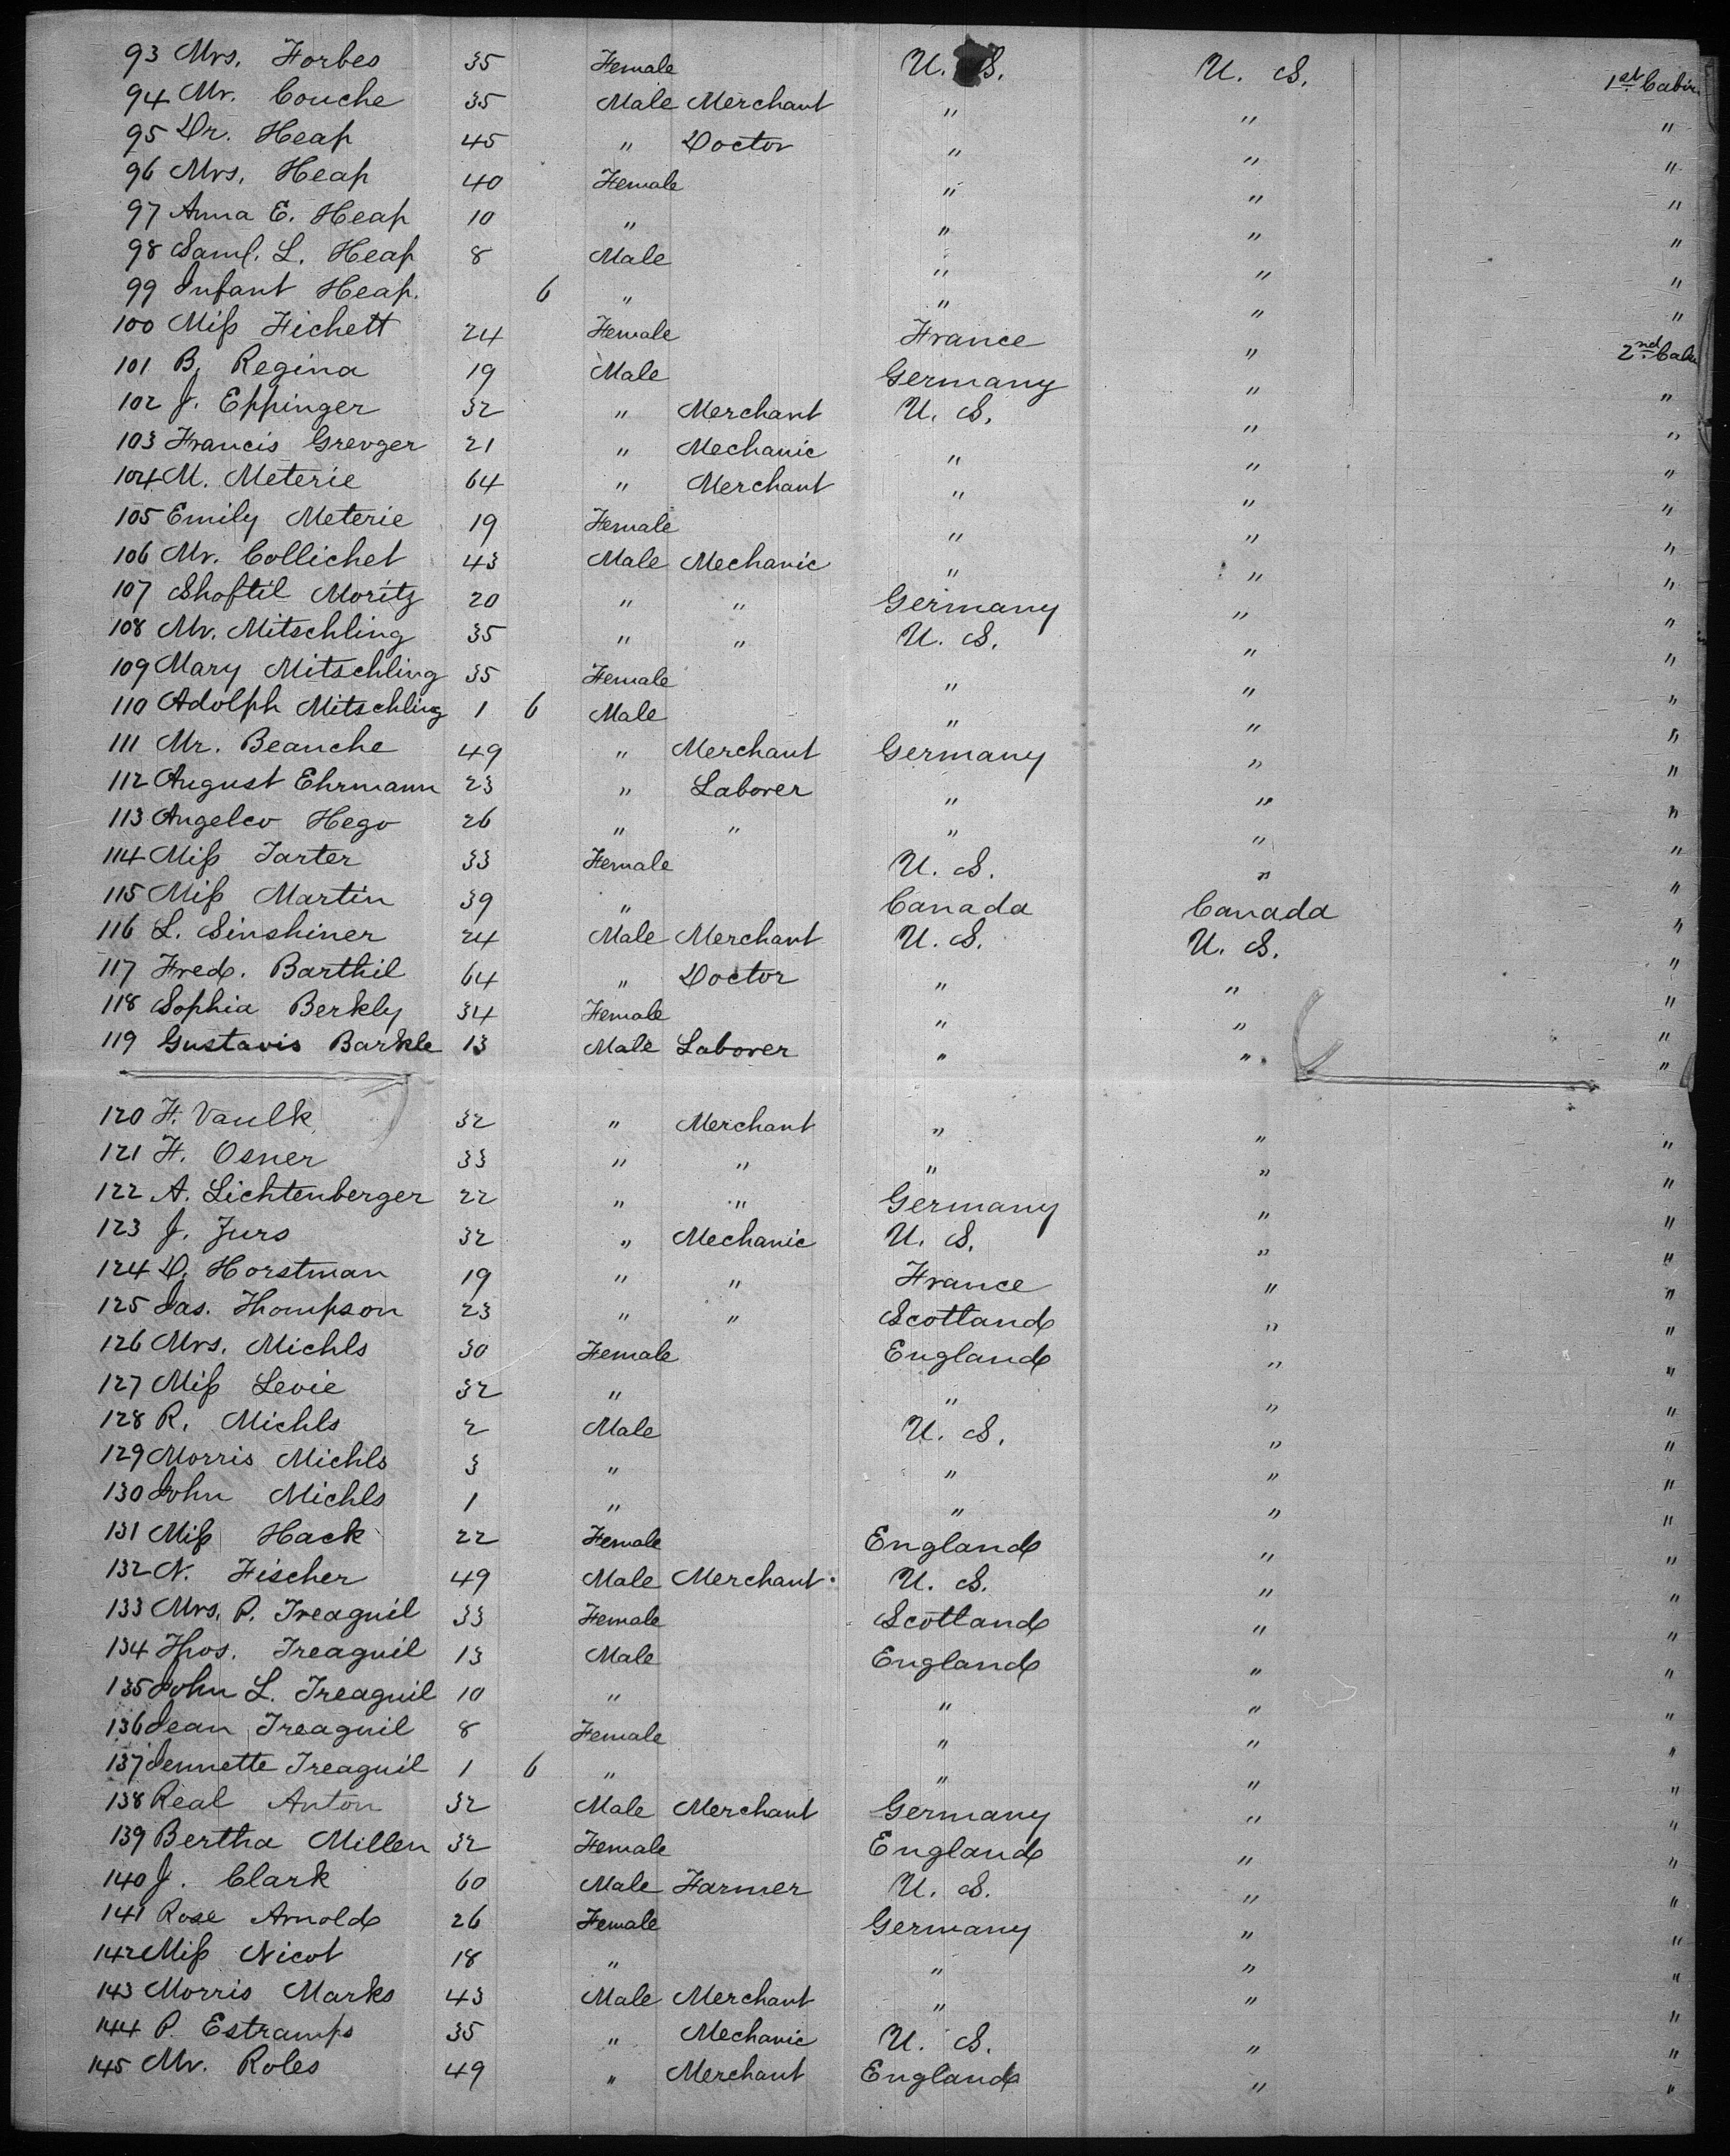 93 Mrs. Forbes 35 Female U. S. U. S. 1st Cabin
94 Mr. Couche 35 Male Merchant " " "
95 Dr. Heap 45 " Doctor " " "
96 Mrs. Heap 40 Female " " "
97 Anna E. Heap 10 " " " "
98 Saml. L. Heap 8 Male " " "
99 Infant Heap. 6 " " " "
100 Miss Fichett 24 Female France " 2nd Cabin
101 B. Regina 19 Male Germany " "
102 J. Eppinger 32 " Merchant U. S. " "
103 Francis Grevger 21 " Mechanic " " "
104 M. Meterie 64 " Merchant " " "
105 Emily Meterie 19 Female " " "
106 Mr. Collichet 43 Male Mechanic " " "
107 Shoftil Moritz 20 " " Germany " "
108 Mr. Mitschling 35 " " U. S. " "
109 Mary Mitschling 35 Female " " "
110 Adolph Mitschling 1 6 Male " " "
111 Mr. Beanche 49 " Merchant Germany " "
112 August Ehrmann 23 " Laborer " " "
113 Angelco Hego 26 " " " " "
114 Miss Tarter 33 Female U. S. " "
115 Miss Martin 39 " Canada Canada "
116 L. Sinshiner 24 Male Merchant U. S. U. S. "
117 Fred. Barthil 64 " Doctor " " "
118 Sophia Berkly 34 Female " " "
119 Gustavis Barkle 13 Male Laborer " " "
120 F. Vaulk 32 " Merchant " " "
121 F. Osner 33 " " " " "
122 A. Lichtenberger 22 " " Germany " "
123 J. Jurs 32 " Mechanic U. S. " "
124 D. Horstman 19 " " France " "
125 Jas. Thompson 23 " " Scotland " "
126 Mrs. Michls 30 Female England " "
127 Miss Levie 32 " " " "
128 R. Michls 2 Male U. S. " "
129 Morris Michls 3 " " " "
130 John Michls 1 " " " "
131 Miss Hack 22 Female England " "
132 N. Fischer 49 Male Merchant U. S. " "
133 Mrs. P. Treaguil 33 Female Scotland " "
134 Thos. Treaguil 13 Male England " "
135 John L. Treaguil 10 " " " "
136 Jean Treaguil 8 Female " " "
137 Jennette Treaguil 1 6 " " " "
138 Real Anton 32 Male Merchant Germany " "
139 Bertha Millen 32 Female England " "
140 J. Clark 60 Male Farmer U. S. " "
141 Rose Arnold 26 Female Germany " "
142 Miss Nicot 18 " " " "
143 Morris Marks 43 Male Merchant " " "
144 P. Estramps 35 " Mechanic U. S. " "
145 Mr. Roles 49 " Merchant England " "